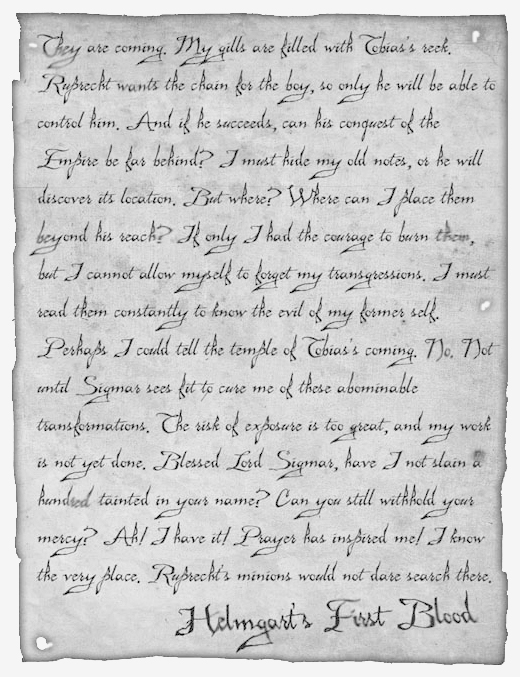 They are coming. My gills are filled with Tobias's reek.
Ruprecht wants the chain for the boy, so only he will be able to
control him. And if he succeeds, can his conquest of the
Empire be far behind? I must hide my old notes, or he will
discover its location. But where? Where can I place them
beyond his reach? If only I had the courage to burn them,
but I cannot allow myself to forget my transgressions. I must
read them constantly to know the evil of my former self.
Perhaps I could tell the temple of Tobias's coming. No. Not
until Sigmar sees fit to cure me of these abominable
transformations. The risk of exposure is too great, and my work
is not yet done. Blessed Lord Sigmar, have I not slain a
hundred tainted in your name? Can you still withhold your
mercy? Ah! I have it! Prayer has inspired me! I know
the very place. Ruprecht's minions would not dare search there.
Helmgart's First Blood